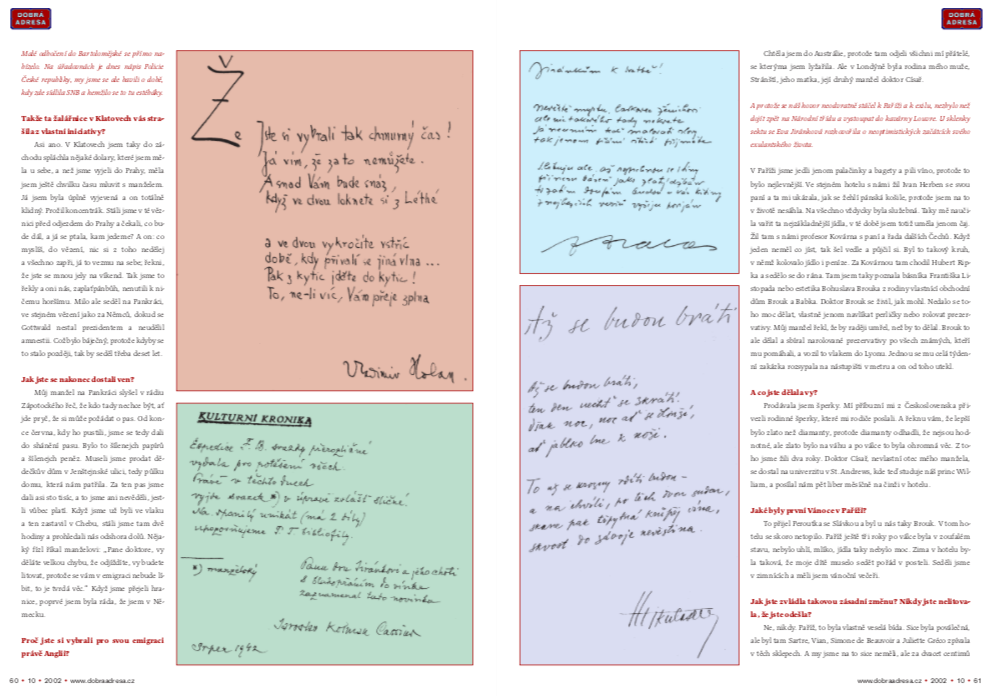 DOBRA
ADRESA
Malé odbočení do Bartolomějské se přímo na-
bízelo. Na úřadovnách je dnes nápis Policie
České republiky, my jsme se ale bavili o době,
kdy zde sídlila SNB a hemžilo se to tu estébáky.
Takže ta žalářnice v Klatovech vás stra-
šila z vlastní iniciativy?
Asi ano. V Klatovech jsem taky do zá-
chodu spláchla nějaké dolary, které jsem mě-
la u sebe, a než jsme vyjeli do Prahy, měla
jsem ještě chvilku času mluvit s manželem.
Já jsem byla úplně vyjevená a on totálně
klidný. Prožil koncentrák. Stáli jsme v té věz-
nici před odjezdem do Prahy a čekali, co bu-
de dál, a já se ptala, kam jedeme? A on: co
myslíš, do vězení, nic si z toho nedělej
a všechno zapři, já to vezmu na sebe, řekni,
že jste se mnou jely na víkend. Tak jsme to
řekly a oni nás, zaplaťpánbůh, nenutili k ni-
čemu horšímu. Milo ale seděl na Pankráci,
ve stejném vězení jako za Němců, dokud se
Gottwald nestal prezidentem a neudělil
amnestii. Což bylo báječný, protože kdyby se
to stalo později, tak by seděl třeba deset let.
Jak jste se nakonec dostali ven?
Můj manžel na Pankráci slyšel v rádiu
Zápotockého řeč, že kdo tady nechce být, ať
jde pryč, že si může požádat o pas. Od kon-
ce června, kdy ho pustili, jsme se tedy dali
do shánění pasu. Bylo to šílenejch papírů
a šílenejch peněz. Museli jsme prodat dě-
dečkův dům v Jenštejnské ulici, tedy půlku
domu, která nám patřila. Za ten pas jsme
dali asi sto tisíc, a to jsme ani nevěděli, jest-
li vůbec platí. Když jsme už byli ve vlaku
a ten zastavil v Chebu, stáli jsme tam dvě
hodiny a prohledali nás odshora dolů. Něja-
ký fízl říkal manželovi: „Pane doktore, vy
děláte velkou chybu, že odjíždíte, vy budete
litovat, protože se vám v emigraci nebude lí-
bit, to je tvrdá věc.“ Když jsme přejeli hra-
nice, poprvé jsem byla ráda, že jsem v Ně-
mecku.
Proč jste si vybrali pro svou emigraci
právě Anglii?
Že
jste si vybrali tak chmurný čas!
Já vím, že za to nemůžete.
A snad Vám bude snáz,
když ve dvou loknete si z Léthé
a ve dvou vykročíte vstříc
době, kdy přivalí se jiná vlna ...
Pak z kytic jděte do kytic!
To, ne-li víc, Vám přeje zplna
Vladimír Holan.
KULTURNÍ KRONIKA
Expedice F. B. svazky
vydala pro potěšení všech
Právě v těchto dnech
vyjde svazek *) v úpravě zvlášť sličné.
Na spanilý unikát (má 2 díly)
upozorňujeme P. T. bibliofily.
*) manželský
Panu dru Jiránkovi a jeho choti
zaznamenal tuto novinku
Jaroslav Kolman Cassius
Srpen 1942
Jiránkům k svatbě!
Až se budou bráti
Až se budou bráti,
ten den nechť se zkrátí!
Však noc, noc ať se dlouží,
ať jablko lne k noži.
Chtěla jsem do Austrálie, protože tam odjeli všichni mí přátelé,
se kterýma jsem lyžařila. Ale v Londýně byla rodina mého muže,
Stránští, jeho matka, její druhý manžel doktor Císař.
A protože se náš hovor neodvratně stáčel k Paříži a k exilu, nezbylo než
dojít zpět na Národní třídu a vystoupat do kavárny Louvre. U sklenky
sektu se Eva Jiránková rozhovořila o neoptimistických začátcích svého
exulantského života.
V Paříži jsme jedli jenom palačinky a bagety a pili víno, protože to
bylo nejlevnější. Ve stejném hotelu s námi žil Ivan Herben se svou
paní a ta mi ukázala, jak se žehlí pánská košile, protože jsem na to
v životě nesáhla. Na všechno vždycky byla služebná. Taky mě nauči-
la vařit ta nejzákladnější jídla, v té době jsem totiž uměla jenom čaj.
Žil tam s námi profesor Kovárna s paní a řada dalších Čechů. Když
jeden neměl co jíst, tak šel vedle a půjčil si. Byl to takový kruh,
v němž kolovalo jídlo i peníze. Za Kovárnou tam chodil Hubert Rip-
ka a sedělo se do rána. Tam jsem taky poznala básníka Františka Li-
stopada nebo estetika Bohuslava Brouka z rodiny vlastníků obchodní
dům Brouk a Babka. Doktor Brouk se živil, jak mohl. Nedalo se to-
ho moc dělat, vlastně jenom navlíkat perličky nebo rolovat prezer-
vativy. Můj manžel řekl, že by raděj umřel, než by to dělal. Brouk to
ale dělal a sbíral narolované prezervativy po všech známých, kteří
mu pomáhali, a vozil to vlakem do Lyonu. Jednou se mu celá týden-
ní zakázka rozsypala na nástupišti v metru a on od toho utekl.
A co jste dělala vy?
Prodávala jsem šperky. Mí příbuzní mi z Československa při-
vezli rodinné šperky, které mi rodiče poslali. A řeknu vám, že lepší
bylo zlato než diamanty, protože diamanty odhadli, že nejsou hod-
notné, ale zlato bylo na váhu a po válce to byla ohromná věc. Z to-
ho jsme žili dva roky. Doktor Císař, nevlastní otec mého manžela,
se dostal na univerzitu v St. Andrews, kde teď studuje náš princ Wil-
liam, a posílal nám pět liber měsíčně na činži v hotelu.
Jaké byly první Vánoce v Paříži?
To přijel Peroutka se Slávkou a byl u nás taky Brouk. V tom ho-
telu se skoro netopilo. Paříž ještě tři roky po válce byla v zoufalém
stavu, nebylo uhlí, mlíko, jídla taky nebylo moc. Zima v hotelu by-
la taková, že moje dítě muselo sedět pořád v posteli. Seděli jsme
v zimnících a měli jsem vánoční večeři.
Jak jste zvládla takovou zásadní změnu? Nikdy jste nelitova-
la, že jste odešla?
Ne, nikdy. Paříž, to byla vlastně veselá bída. Sice byla poválečná,
ale byl tam Sartre, Vian, Simone de Beauvoir a Juliette Gréco zpívala
v těch sklepech. A my jsme na to sice neměli, ale za dvacet centimů
60 • 10 • 2002 • www.dobraadresa.cz
DOBRA
ADRESA
www.dobraadresa.cz • 2002 • 10 • 61